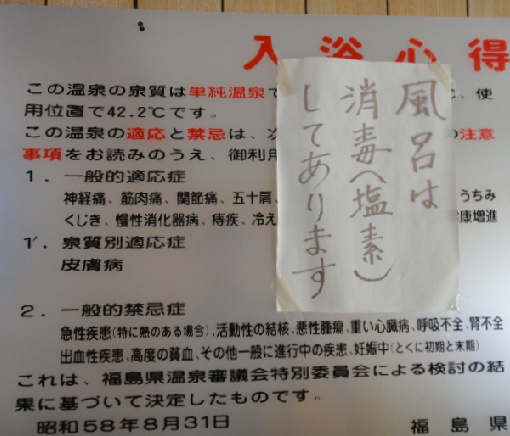 入浴心得
この温泉の泉質は単純温泉で、使
用位置で42.2℃です。
この温泉の適応と禁忌は、次の注意
事項をお読みのうえ、御利用
1. 一般的適応症
神経痛、筋肉痛、関節痛、五十肩、うちみ
くじき、慢性消化器病、痔疾、冷え 康増進
1'. 泉質別適応症
皮膚病
2. 一般的禁忌症
急性疾患(特に熱のある場合)、活動性の結核、悪性腫瘍、重い心臓病、呼吸不全、腎不全
出血性疾患、高度の貧血、その他一般に進行中の疾患、妊娠中(とくに初期と末期)
これは、福島県温泉審議会特別委員会による検討の結
果に基づいて決定したものです。
昭和58年8月31日 福島県
風呂は
消毒(塩素)
してあります